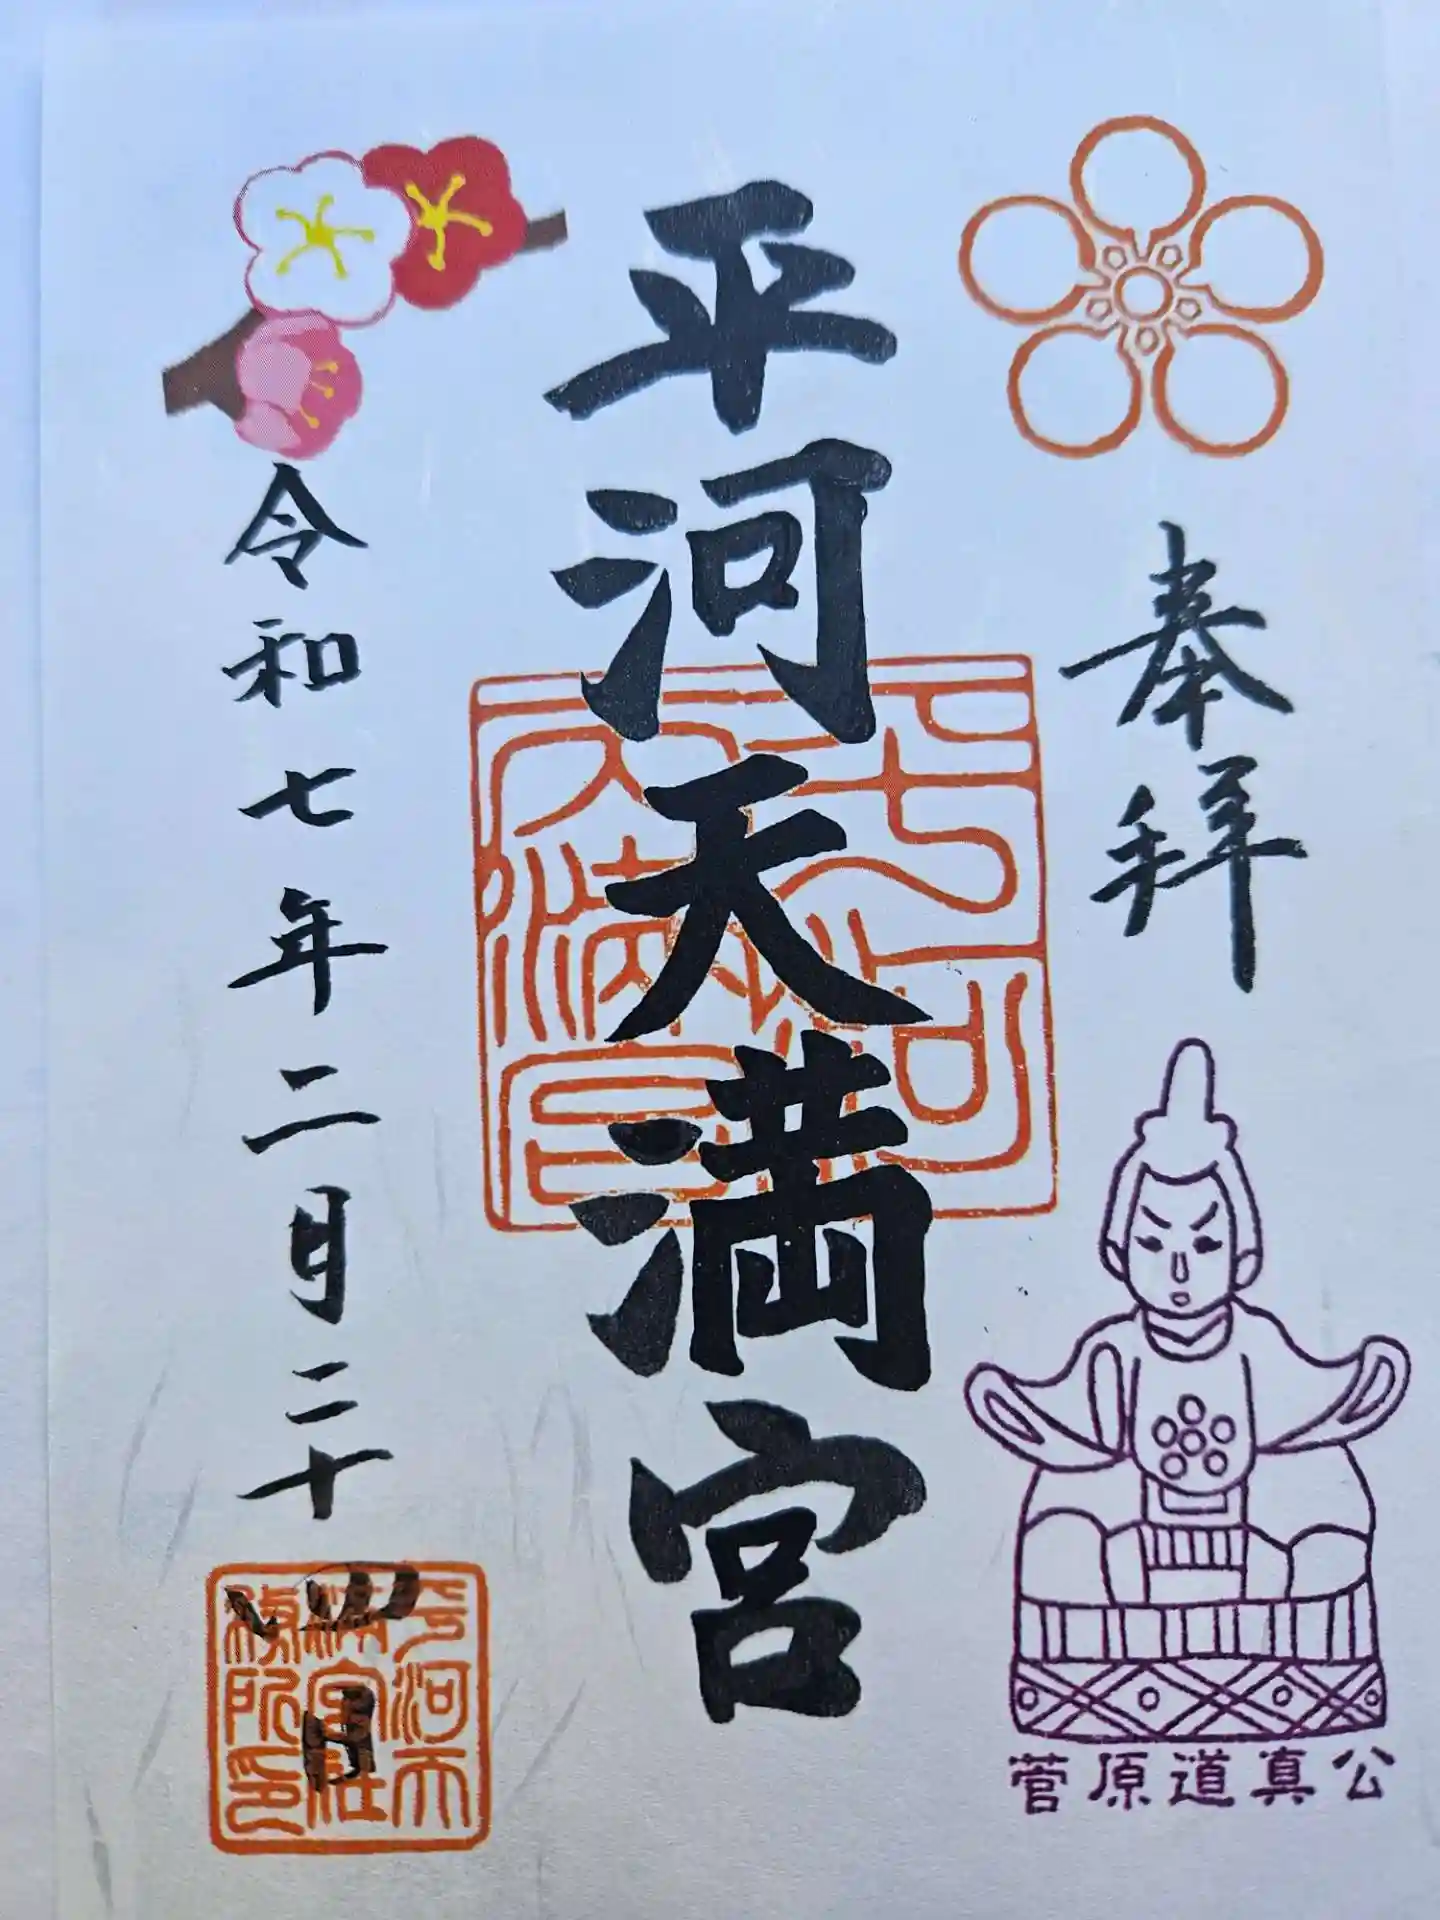 奉拝
菅原道真公
平河天満宮
平河
天満宮
令和七年二月二十四日
平河天
満宮社
務所印